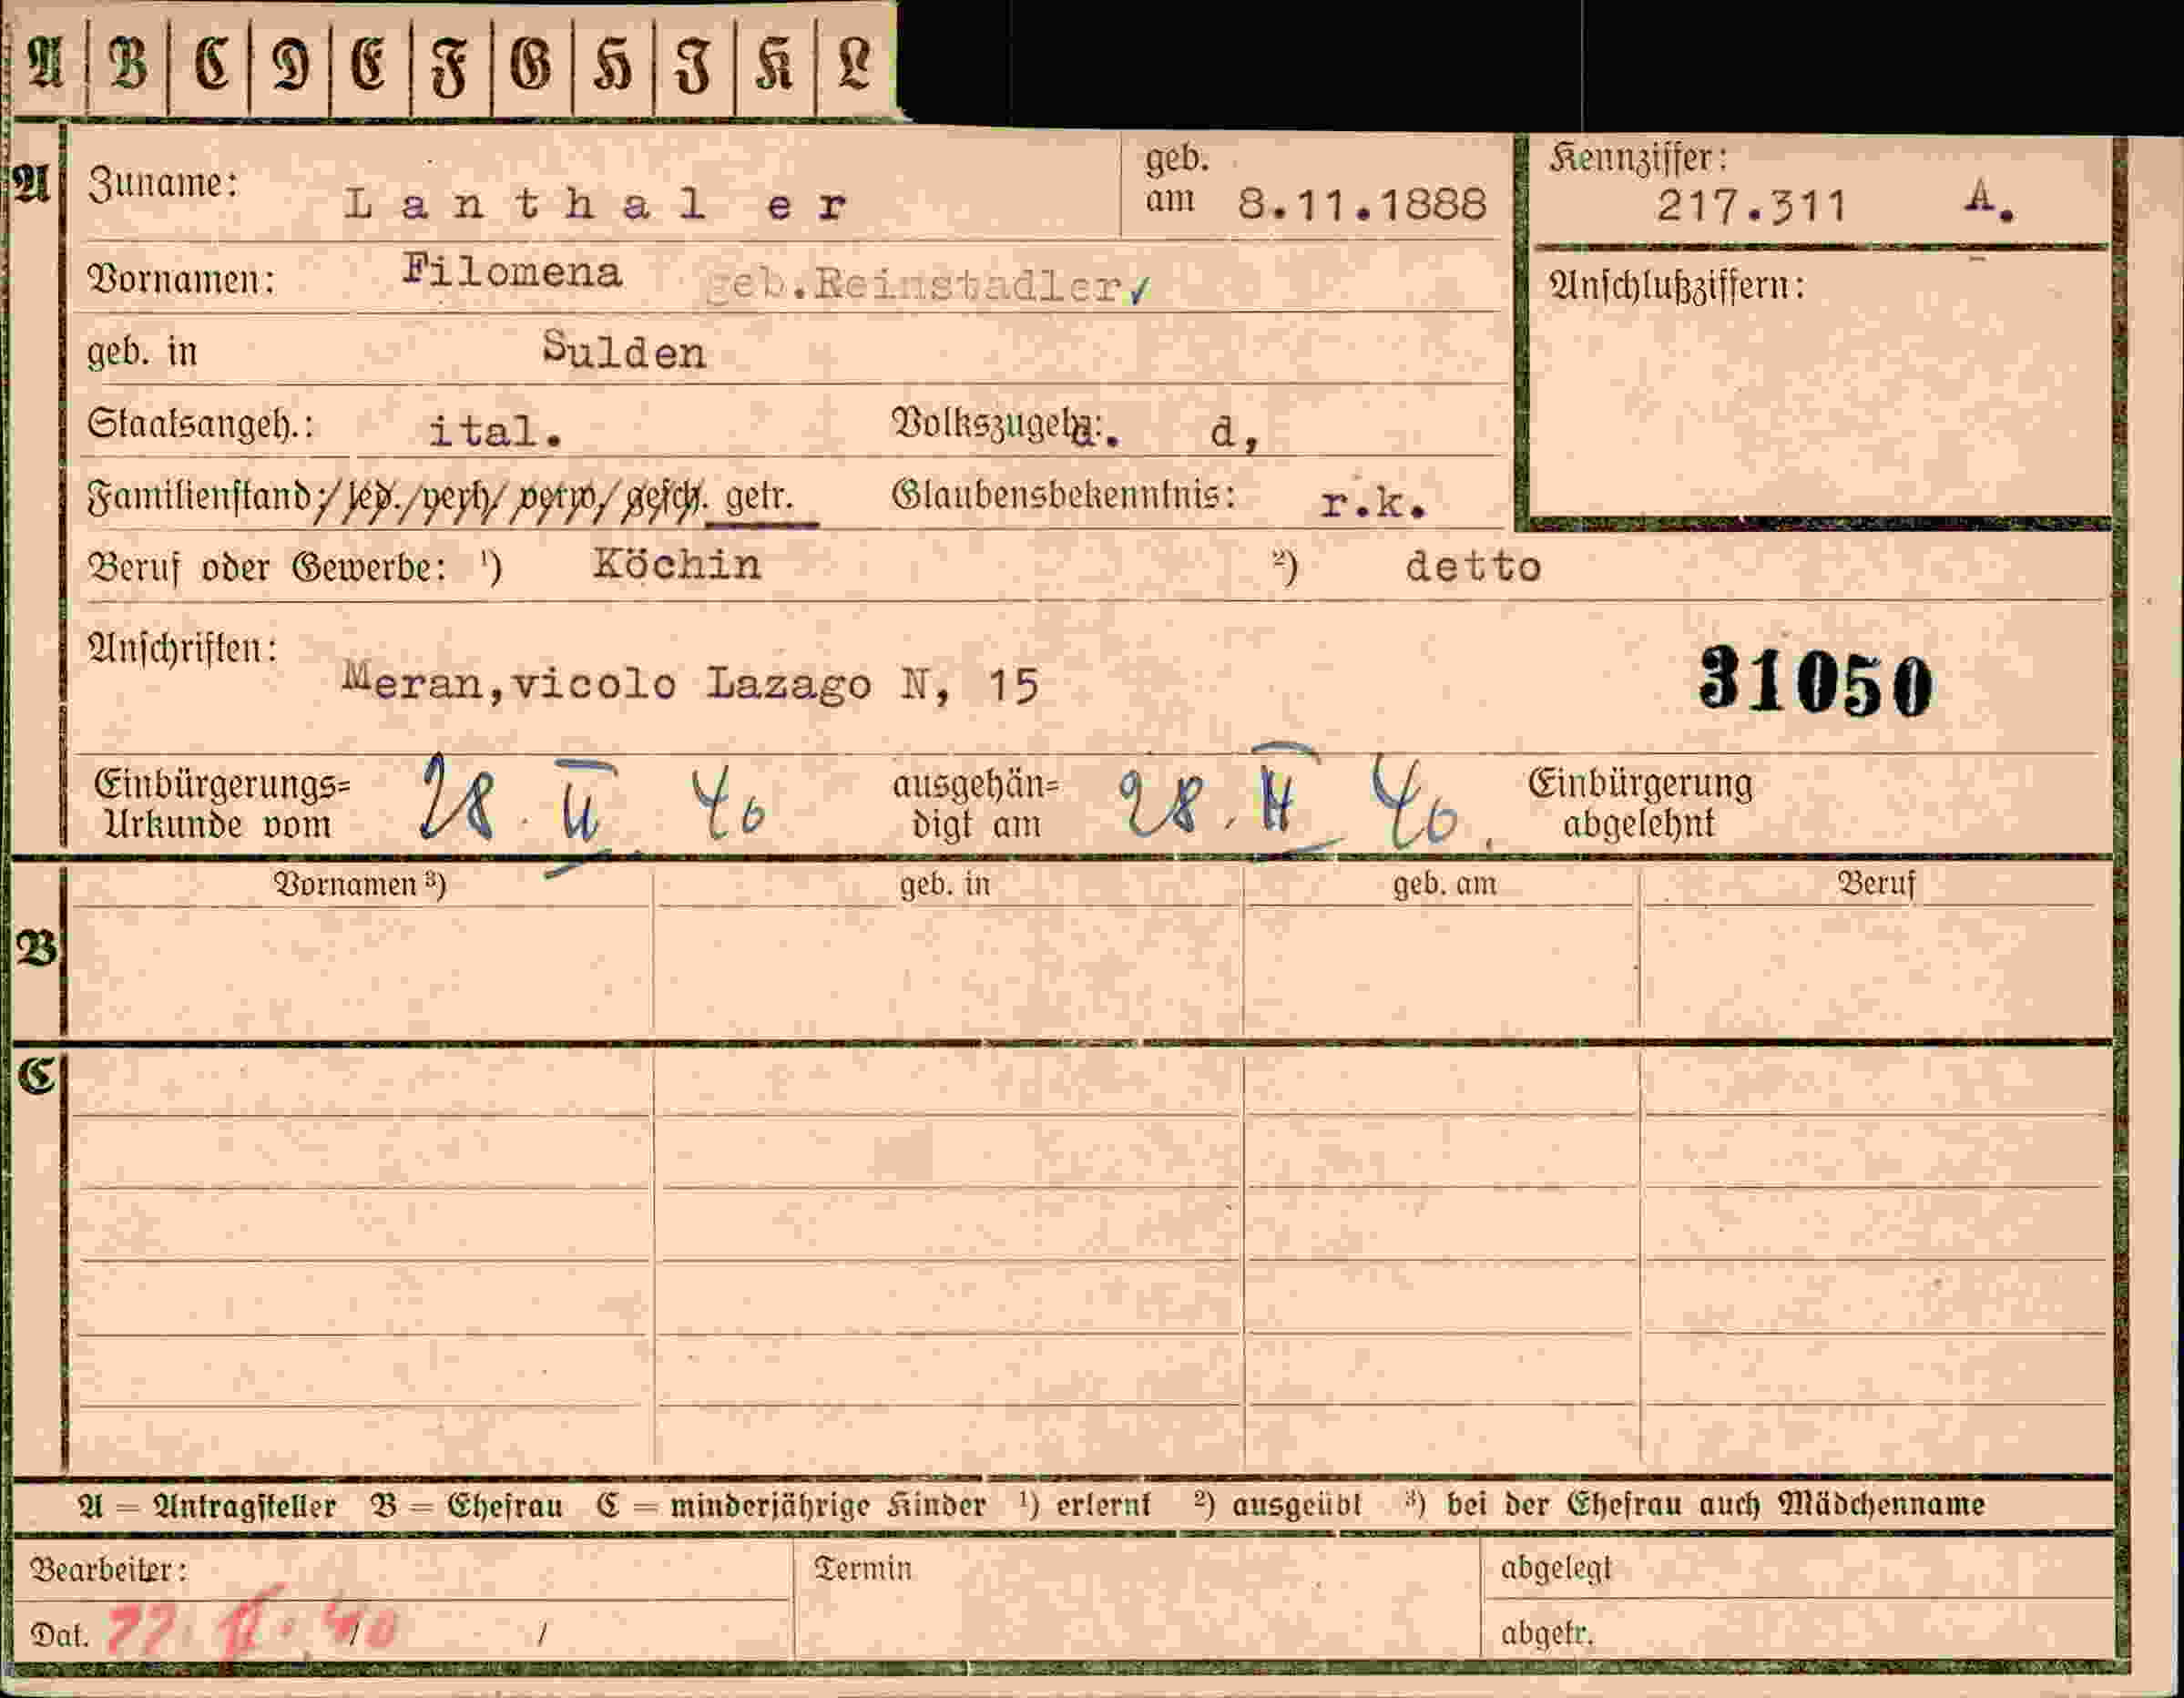 A B C D E F G H I K L
A Zuname: Lanthaler geb. am 8.11.1888 Kennziffer: 217.311 A.
Vornamen: Filomena geb.Reinstadler✓ Anschlußziffern:
geb. in Sulden
Staatsangeh.: ital. Volkszugeh.: d,
Familienstand: led./verh/ verw/ gesch. getr. Glaubensbekenntnis: r.k.
Beruf oder Gewerbe: ¹) Köchin ²) detto
Anschriften: Meran,vicolo Lazago N, 15 31050
Einbürgerungs= Urkunde vom 28. II 40 ausgehän= digt am 28. II 40. Einbürgerung abgelehnt
Vornamen ³) geb. in geb. am Beruf
B
C
A = Antragsteller B = Ehefrau C = minderjährige Kinder ¹) erlernt ²) ausgeübt ³) bei der Ehefrau auch Mädchenname
Bearbeiter: Termin abgelegt
Dat. / / abgetr.